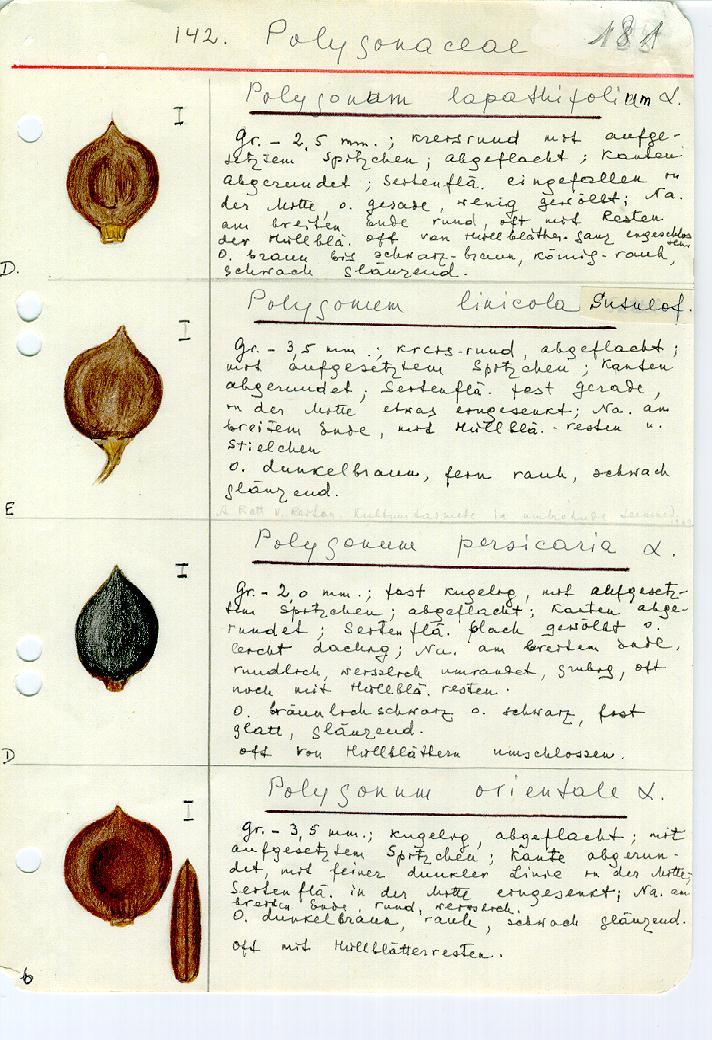 142. Polygonaceae 181
Polygonum lapathifolium L.
I
Gr. - 2,5 mm.; kreisrund mit aufge-
setztem Spitzchen; abgeflacht; Kanten
abgerundet; Seitenflä. eingefallen in
der Mitte, o. gerade, wenig gewölbt; Na.
am breiten Ende rund, oft mit Resten
der Hüllblä. oft von Hüllblätter ganz eingeschlossen
O. braun bis schwarz-braun, körnig-rauh,
schwach glänzend.
D.
Polygonum linicola Sutulof.
I
Gr. - 3,5 mm.; kreis-rund, abgeflacht;
mit aufgesetztem Spitzchen; Kanten
abgerundet; Seitenflä. fast gerade,
in der Mitte etwas eingesenkt; Na. am
breitem Ende, mit Hüllblä.-resten u.
Stielchen
O. dunkelbraun, fein rauh, schwach
glänzend.
E
Polygonum persicaria L.
I
Gr. - 2,0 mm.; fast kugelig, mit aufgesetz-
tem Spitzchen; abgeflacht; Kanten abge-
rundet; Seitenflä. flach gewölbt o.
leicht dachig; Na. am breiten Ende,
rundlich, weisslich umrandet, grubig, oft
noch mit Hüllblä. resten.
O. bräunlichschwarz o. schwarz, fast
glatt, glänzend.
oft von Hüllblättern umschlossen.
D
Polygonum orientale L.
I
Gr. - 3,5 mm.; kugelig, abgeflacht; mit
aufgesetztem Spitzchen; Kante abgerun-
det, mit feiner dunkler Linie in der Mitte;
Seitenflä. in der Mitte eingesenkt; Na. am
breiten Ende, rund, weisslich.
O. dunkelbraun, rauh, schwach glänzend.
oft mit Hüllblätterresten.
b